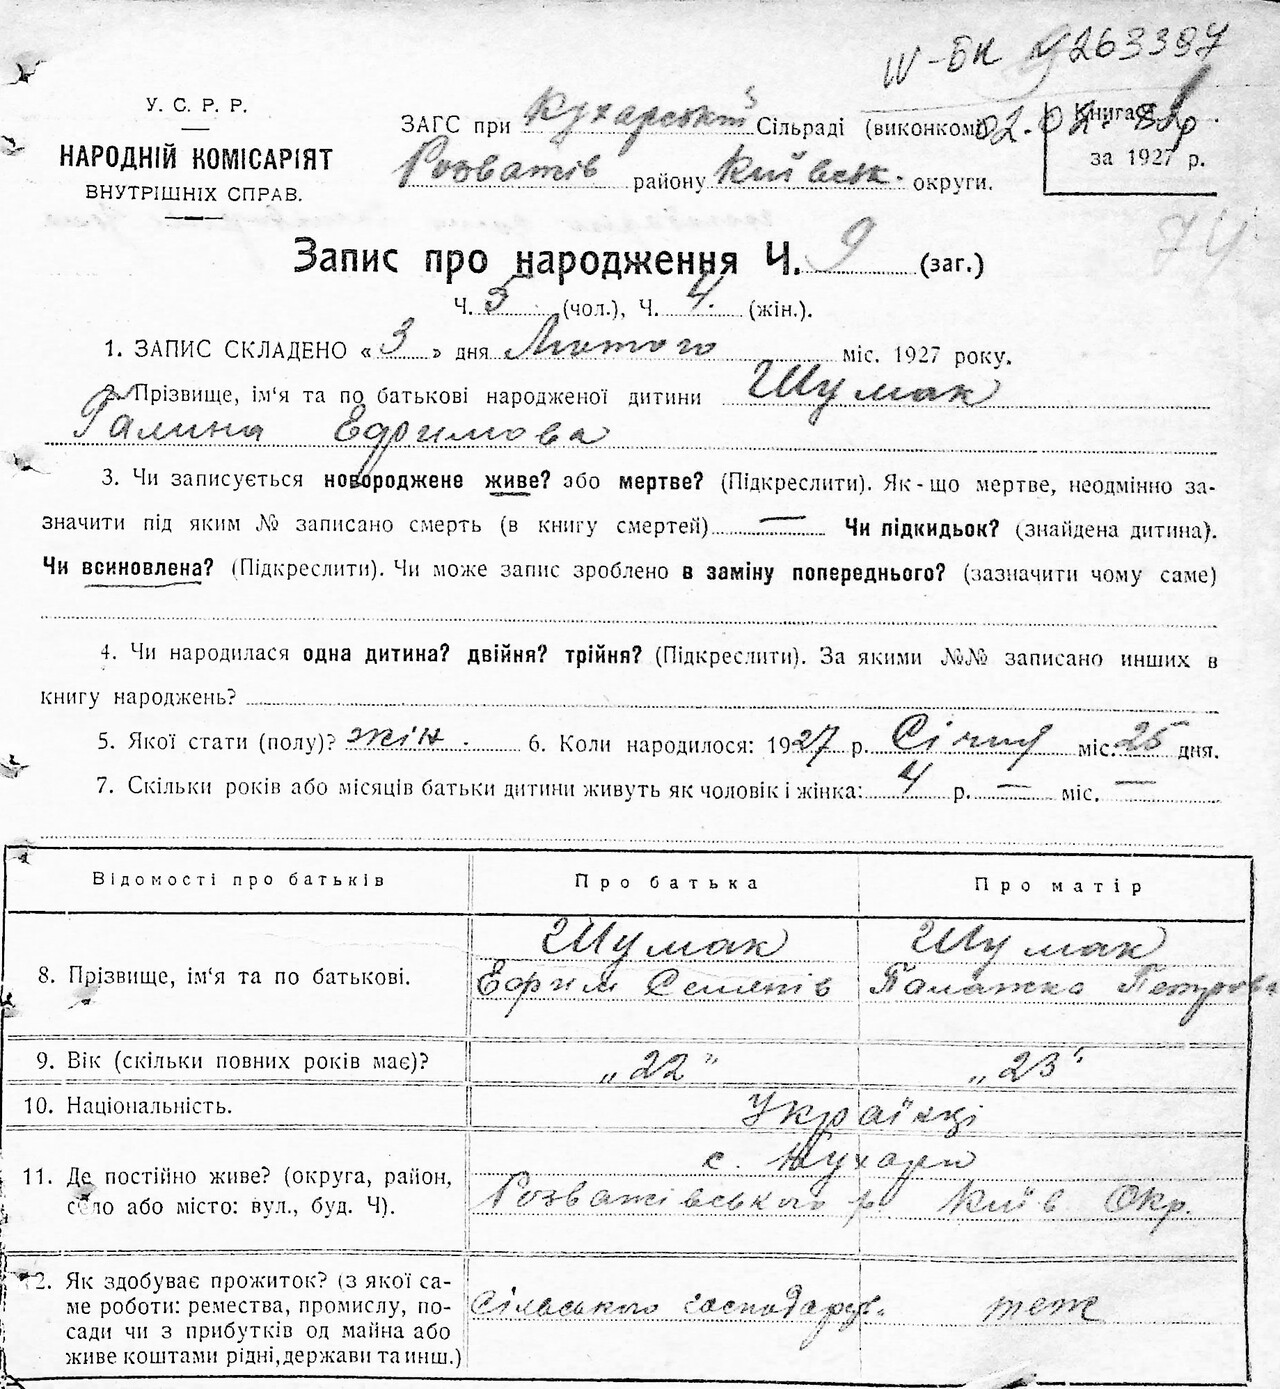 IV-БК № 263397
У. С. Р. Р.
НАРОДНІЙ КОМІСАРІЯТ
ВНУТРІШНІХ СПРАВ.
ЗАГС при Кухарській Сільраді (виконкомі)
02.02.
Книга
за 1927 р.
Розватів району Київськ. округи.
74
Запис про народження Ч. 9 (заг.)
Ч. 5 (чол.), Ч. 4 (жін.).
1. ЗАПИС СКЛАДЕНО «3» дня Лютого міс. 1927 року.
2. Прізвище, ім‘я та по батькові народженої дитини Шумак
Галина Ефримова
3. Чи записується новороджене живе? або мертве? (Підкреслити). Як-що мертве, неодмінно за-
значити під яким № записано смерть (в книгу смертей) — Чи підкидьок? (знайдена дитина).
Чи всиновлена? (Підкреслити). Чи може запис зроблено в заміну попереднього? (зазначити чому саме)
4. Чи народилася одна дитина? двійня? трійня? (Підкреслити). За якими №№ записано инших в
книгу народжень?
5. Якої стати (полу)? жін. 6. Коли народилося: 1927 р. Січня міс. 25 дня.
7. Скільки років або місяців батьки дитини живуть як чоловік і жінка: 4 р. — міс. —
Відомості про батьків Про батька Про матір
8. Прізвище, ім‘я та по батькові. Шумак Шумак
Ефрим Семенів Палажка Петрова
9. Вік (скільки повних років має)? „22” „23”
10. Національність. Українці
11. Де постійно живе? (округа, район,
село або місто: вул., буд. Ч).
с. Кухари
Розватівського р Київ Окр.
12. Як здобуває прожиток? (з якої са-
ме роботи: ремества, промислу, по-
сади чи з прибутків од майна або
живе коштами рідні, держави та инш.)
Сільського господарув. теж